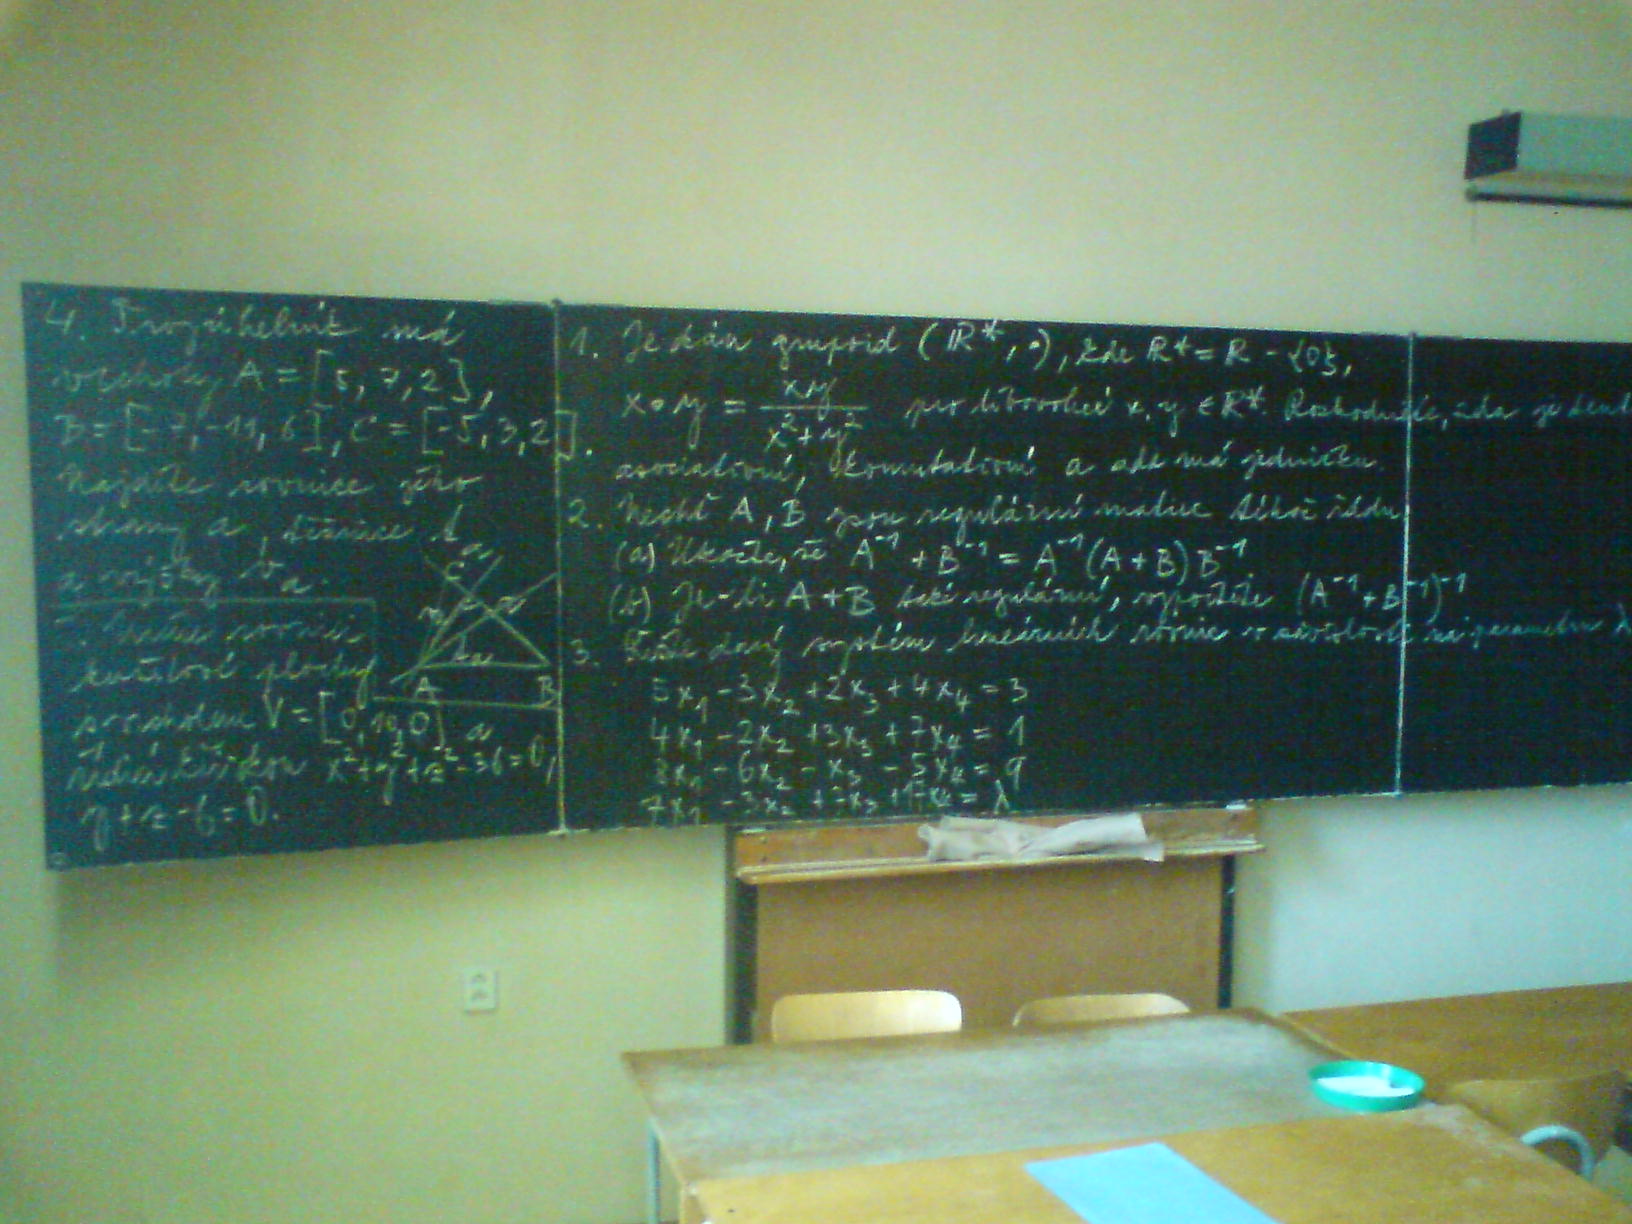 4. Trojúhelník má
vrcholy A = [5, 7, 2],
B = [-7, -11, 6], C = [-5, 3, 2].
Najděte rovnice jeho
strany a, těžnice t_a
a výšky v_a.
rovnici
kuželové plochy
s vrcholem V = [0, 10, 0] a
řídící křivkou x² + y² + z² - 36 = 0,
y + z - 6 = 0.
C
a
t_a
A
B
1. Je dán grupoid (R*, ∘), kde R* = R - {0},
x ∘ y = xy / x² + y² pro libovolné x, y ∈ R*. Rozhodněte, zda je
asociativní, komutativní a zda má jedničku.
2. Nechť A, B jsou regulární matice téhož řádu
(a) Ukažte, že A⁻¹ + B⁻¹ = A⁻¹ (A + B) B⁻¹
(b) Je-li A + B také regulární, vypočtěte (A⁻¹ + B⁻¹)⁻¹
3. Řešte daný systém lineárních rovnic v závislosti na parametru λ
5x₁ - 3x₂ + 2x₃ + 4x₄ = 3
4x₁ - 2x₂ + 3x₃ + 7x₄ = 1
8x₁ - 6x₂ - x₃ - 5x₄ = 9
7x₁ - 3x₂ + 7x₃ + 17x₄ = λ